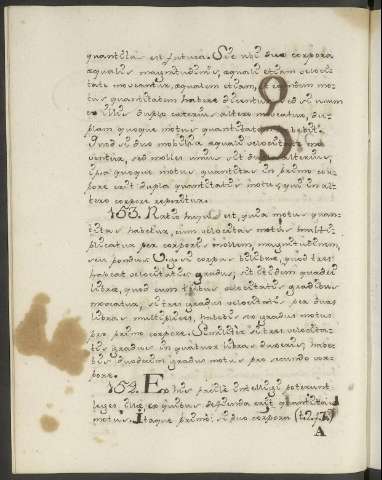 quantitas est futura. Sic ubi duo corpora
æqualis magnitudinis, æquali etiam veloci-
tate moventur, æqualem etiam, et eamdem mo-
tus quantitatem habere dicentur: sed si unum
ex illis duplo celerius altero moveatur, du-
plam quoque motus quantitatem habebit.
Quod si duo mobilia æquali velocitate mo-
ventur, sed moles unius sit dupla alterius,
ipsa quoque motus quantitas in primo corpo-
re erit dupla quantitatis motus, quæ in al-
tero corpore reperitur.
153. Ratio hujus est, quia motus quan-
titas habetur, cum velocitas motus multi-
plicatur per corporis molem, magnitudinem,
seu pondus. Quasi corpus bilibre, quod tres
habeat velocitatis gradus, sit itidem quatuor
libræ, quod cum tribus velocitatis gradibus
moveatur, si tres gradus velocitatis per duas
libras multiplices, habebis sex gradus motus
pro primo corpore. Similiter si tres velocita-
tis gradus in quatuor libras ducas, habe-
bis duodecim gradus motus pro secundo cor-
pore.
154. Ex his facile intelligi poterunt
leges illæ, ex quibus definienda erit quantitas
motus. Itaque primo: si duo corpora (
A